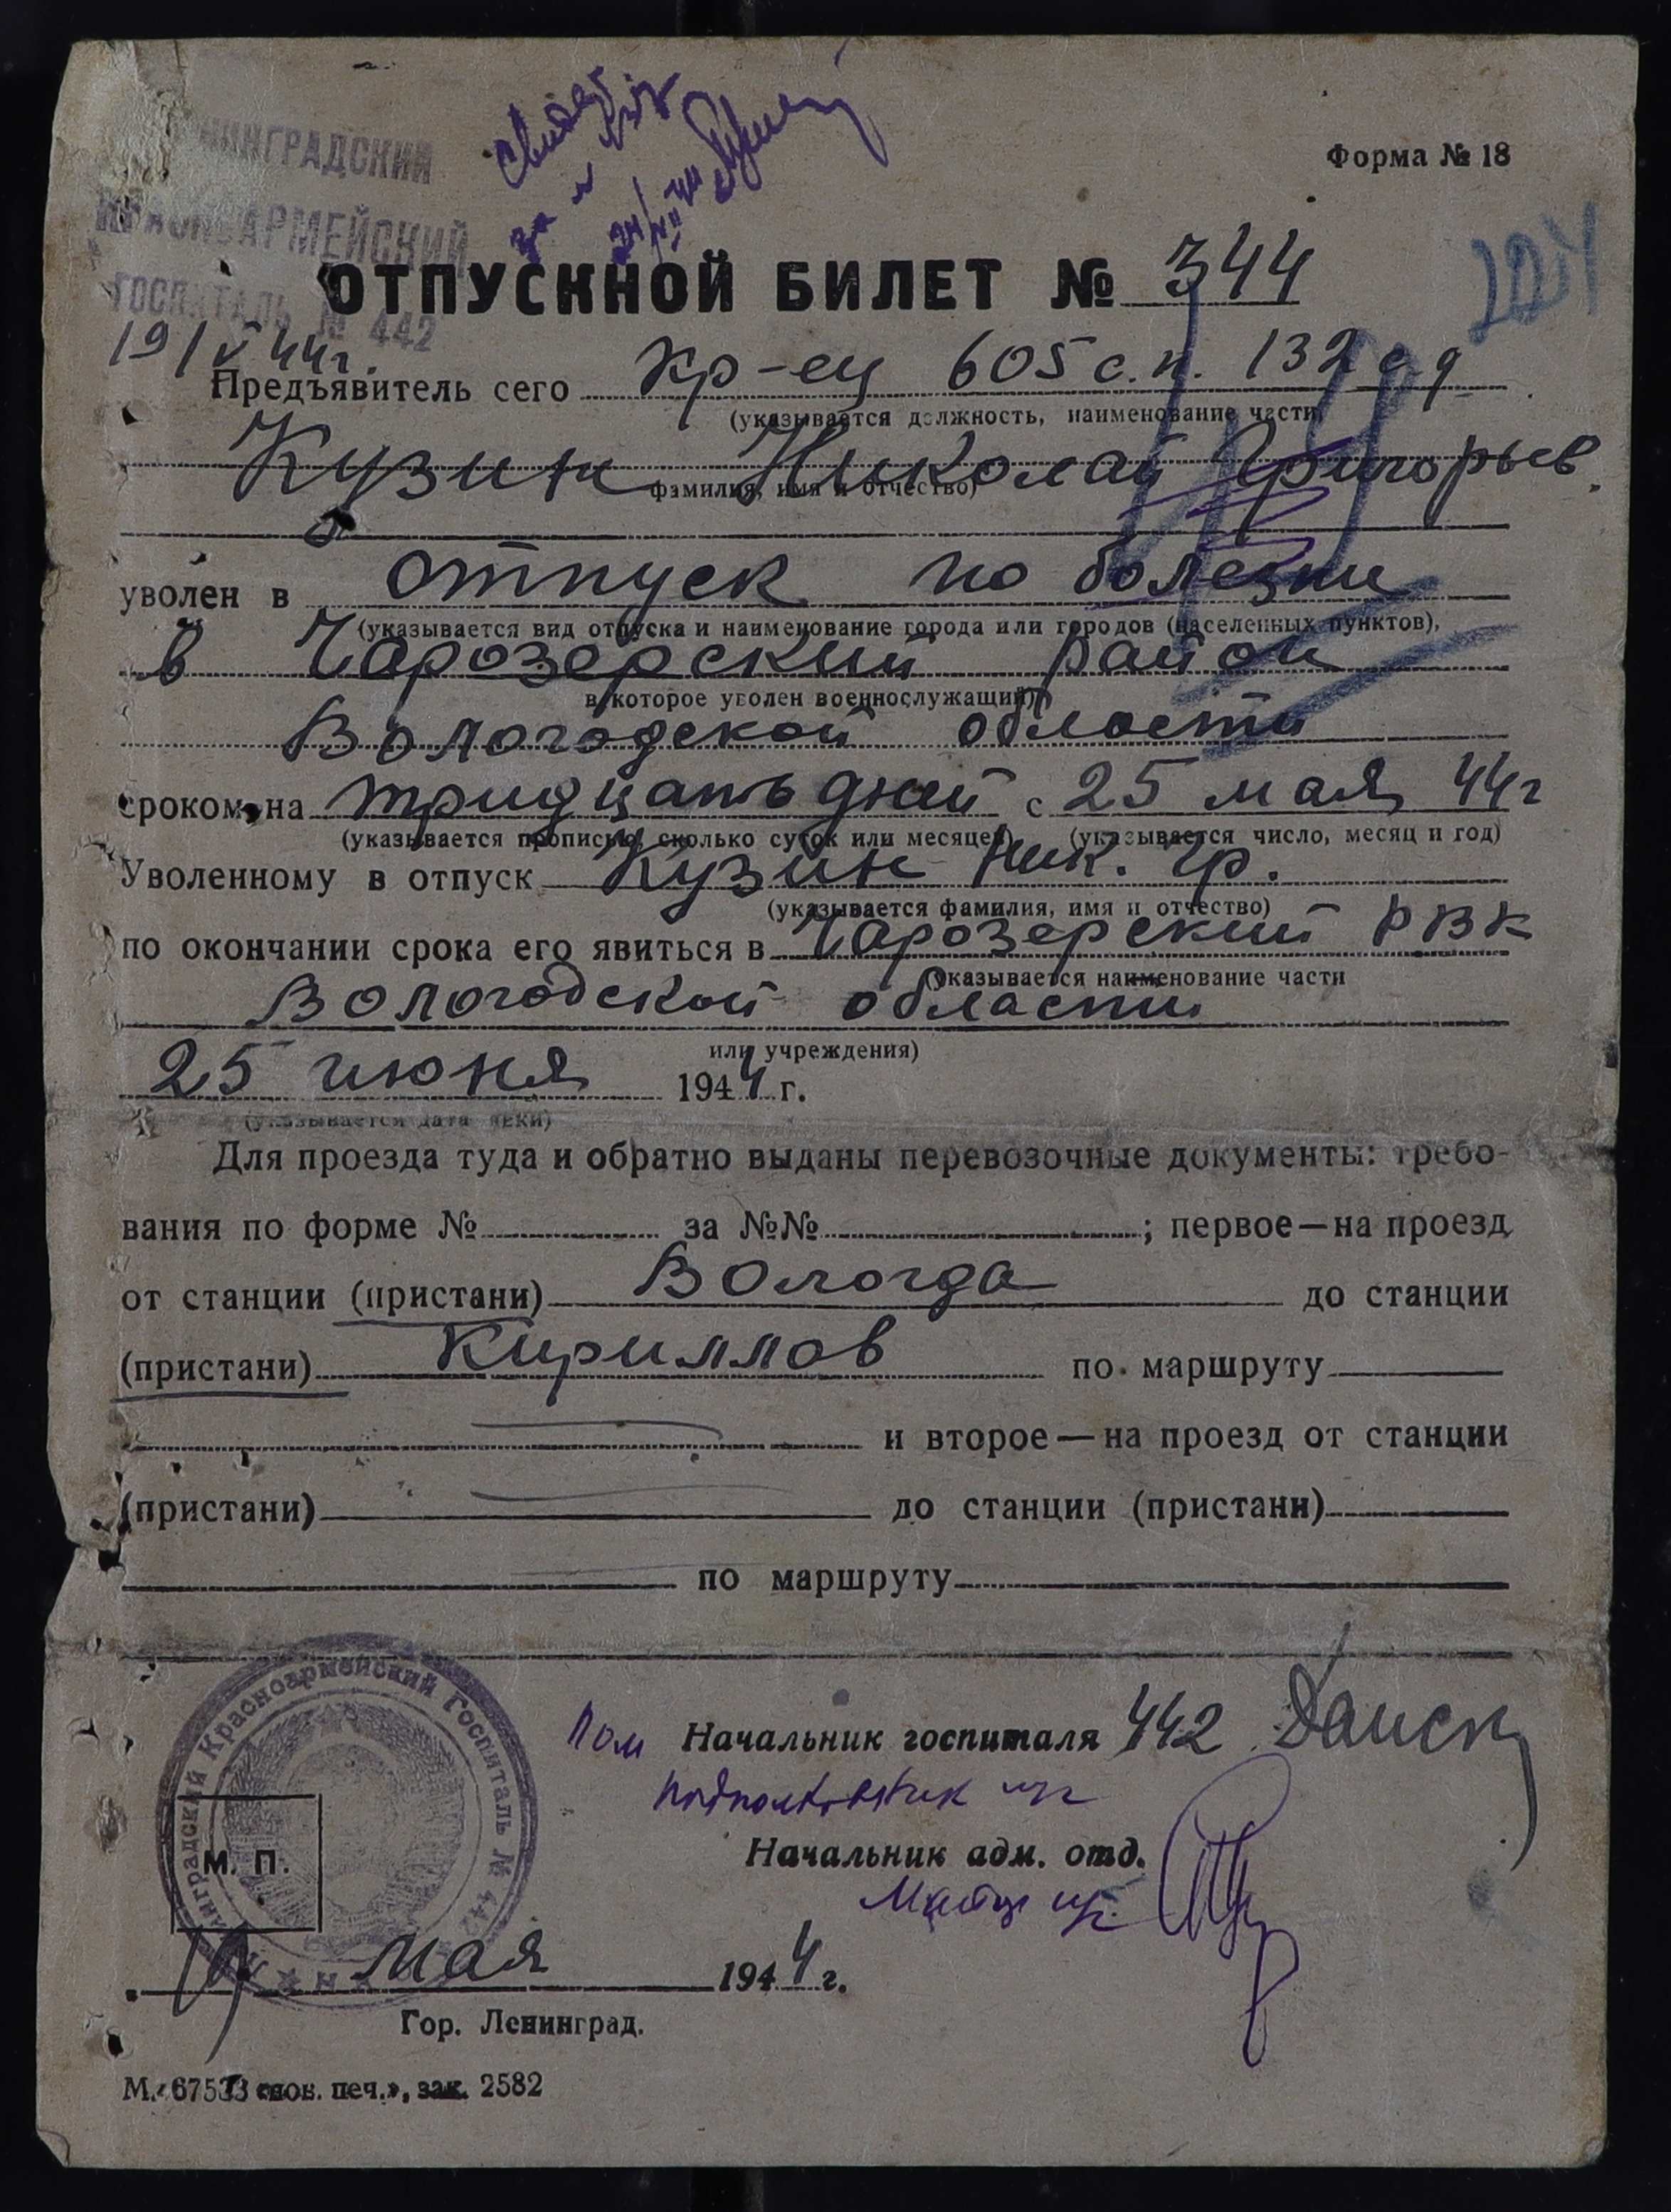 ЛЕНИНГРАДСКИЙ
КРАСНОАРМЕЙСКИЙ
ГОСПИТАЛЬ № 442
19/V 44г.
Форма № 18
за
24/VII 44
ОТПУСКНОЙ БИЛЕТ № 344
Предъявитель сего кр-ец 605 с.п. 132 с д
(указывается должность, наименование части,
Кузин Николай Григорьев.
фамилия, имя и отчество)
уволен в отпуск по болезни
(указывается вид отпуска и наименование города или городов (населенных пунктов),
в Чарозерский район
в которое уволен военнослужащий)
Вологодской области
сроком на тридцать дней с 25 мая 44г
(указывается прописью, сколько суток или месяцев) (указывается число, месяц и год)
Уволенному в отпуск Кузин Ник. Гр.
(указывается фамилия, имя и отчество)
по окончании срока его явиться в Чарозерский РВК
(указывается наименование части
Вологодской области
или учреждения)
25 июня 1944 г.
(указывается дата явки)
Для проезда туда и обратно выданы перевозочные документы: требо-
вания по форме № за №№ ; первое—на проезд
от станции (пристани) Вологда до станции
(пристани) Кириллов по маршруту
и второе—на проезд от станции
(пристани) до станции (пристани)
по маршруту
Ленинградский Красноармейский Госпиталь № 442
М. П.
Пом Начальник госпиталя 442
подполковник м/с
Начальник адм. отд.
мая 1944 г.
Гор. Ленинград.
М. 67533 печ.», зак. 2582